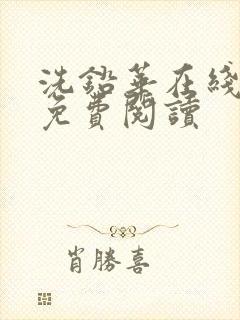 洗鉛華在綫
免費閱讀
肖勝喜